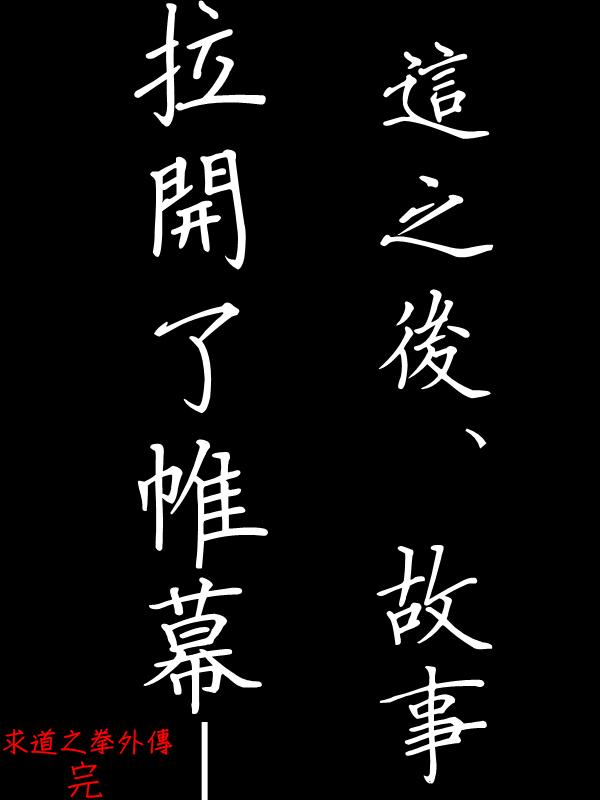 這之後、故事
拉開了帷幕—
求道之拳外傳
完